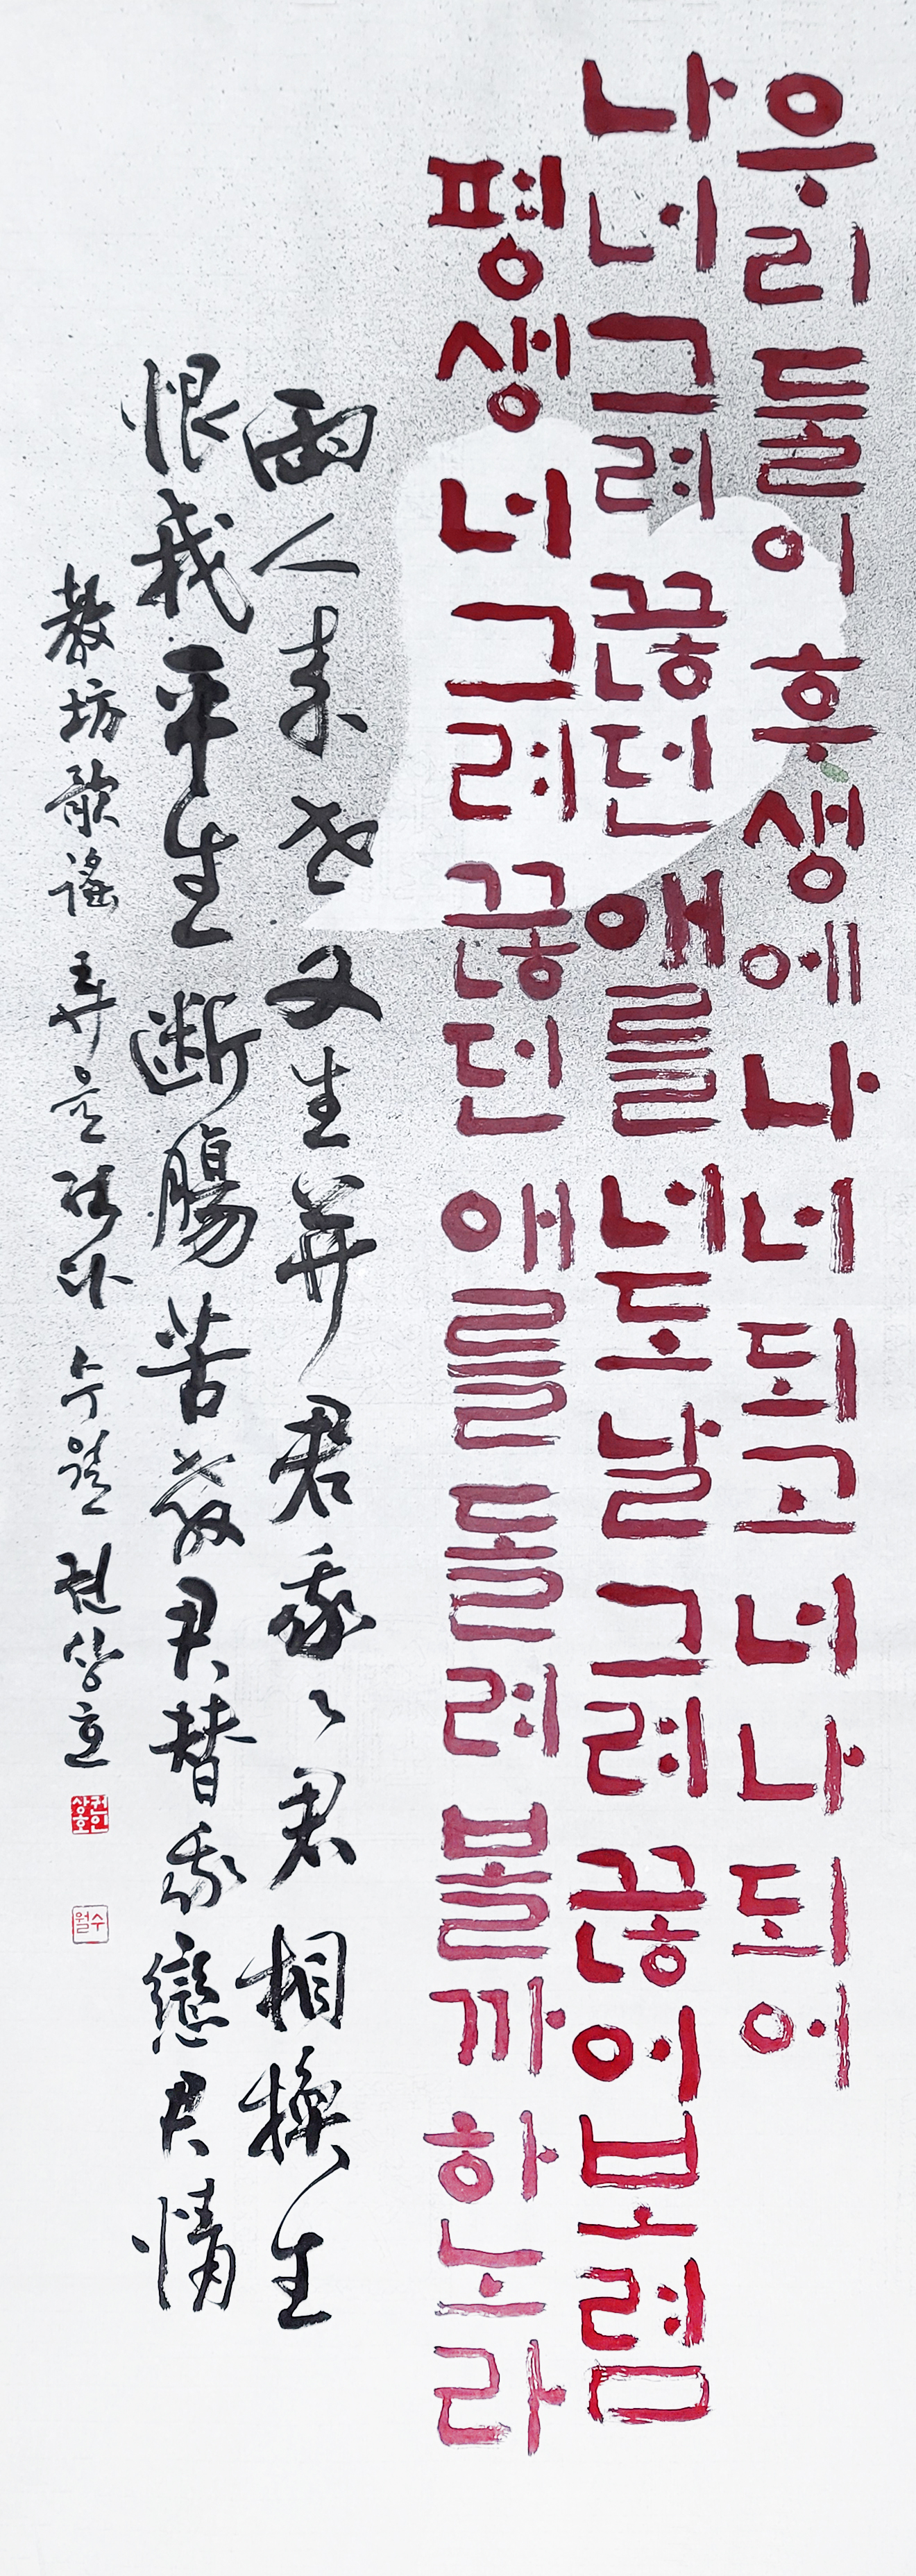 우리들이 후생에 나 너 되고 너 나 되어
나 너 그려 끊던 애를 너도 날 그려 끊어보렴
평생 너 그려 끊던 애를 돌려 볼까 하노라
兩人来世又生幷君我〻君相換生
恨我平生断腸苦敎君替我戀君情
敎坊歌謠 弄을 적다 수월 권상호
권인상호
수월